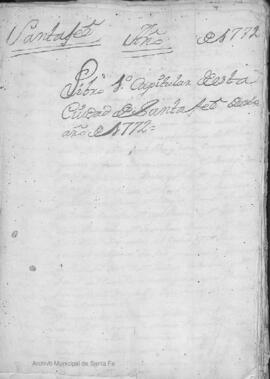 Santafeé Año de 1772
Libro 1º Capitular de esta
Ciudad de Santa feé de este
año de 1772=
Archivo Municipal de Santa Fe